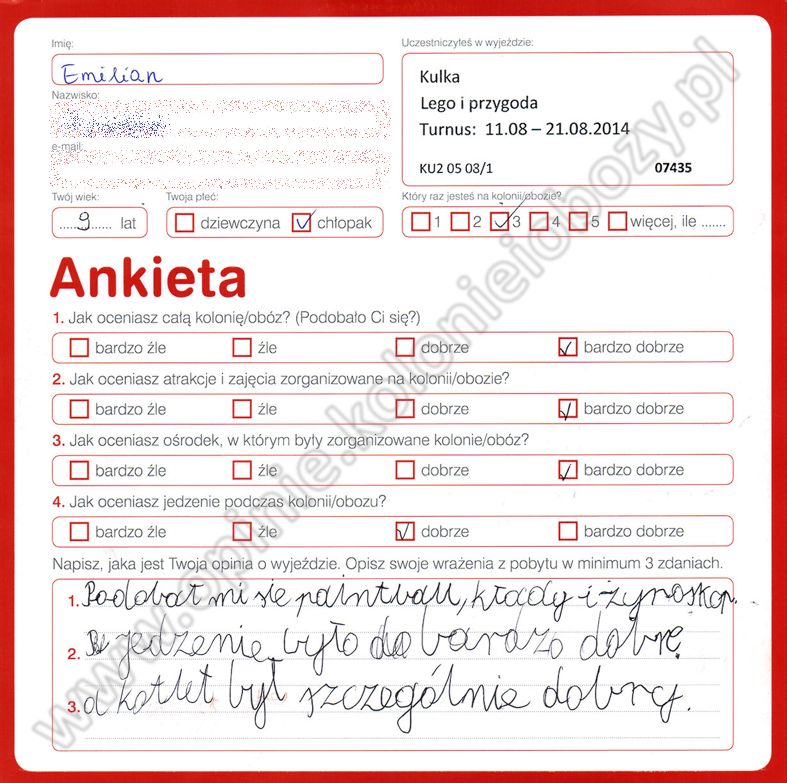 Imię:
Uczestniczyłeś w wyjeździe:
Emilian
Kulka
Lego i przygoda
Turnus: 11.08 – 21.08.2014
KU2 05 08/1 07435
Nazwisko:
e-mail:
Twój wiek:
Twoja płeć:
Który raz jesteś na kolonii/obozie?
9 lat
dziewczyna chłopak
1 2 3 4 5 więcej, ile .......
Ankieta
1. Jak oceniasz całą kolonię/obóz? (Podobało Ci się?)
bardzo źle źle dobrze bardzo dobrze
2. Jak oceniasz atrakcje i zajęcia zorganizowane na kolonii/obozie?
bardzo źle źle dobrze bardzo dobrze
3. Jak oceniasz ośrodek, w którym były zorganizowane kolonie/obóz?
bardzo źle źle dobrze bardzo dobrze
4. Jak oceniasz jedzenie podczas kolonii/obozu?
bardzo źle źle dobrze bardzo dobrze
Napisz, jaka jest Twoja opinia o wyjeździe. Opisz swoje wrażenia z pobytu w minimum 3 zdaniach.
1. Podobał mi sie paintball, kłady i żyroskop.
2. jedzenie było bardzo dobre
3. a kotlet był szczególnie dobry.
www.opinie.kolonieiobozy.pl